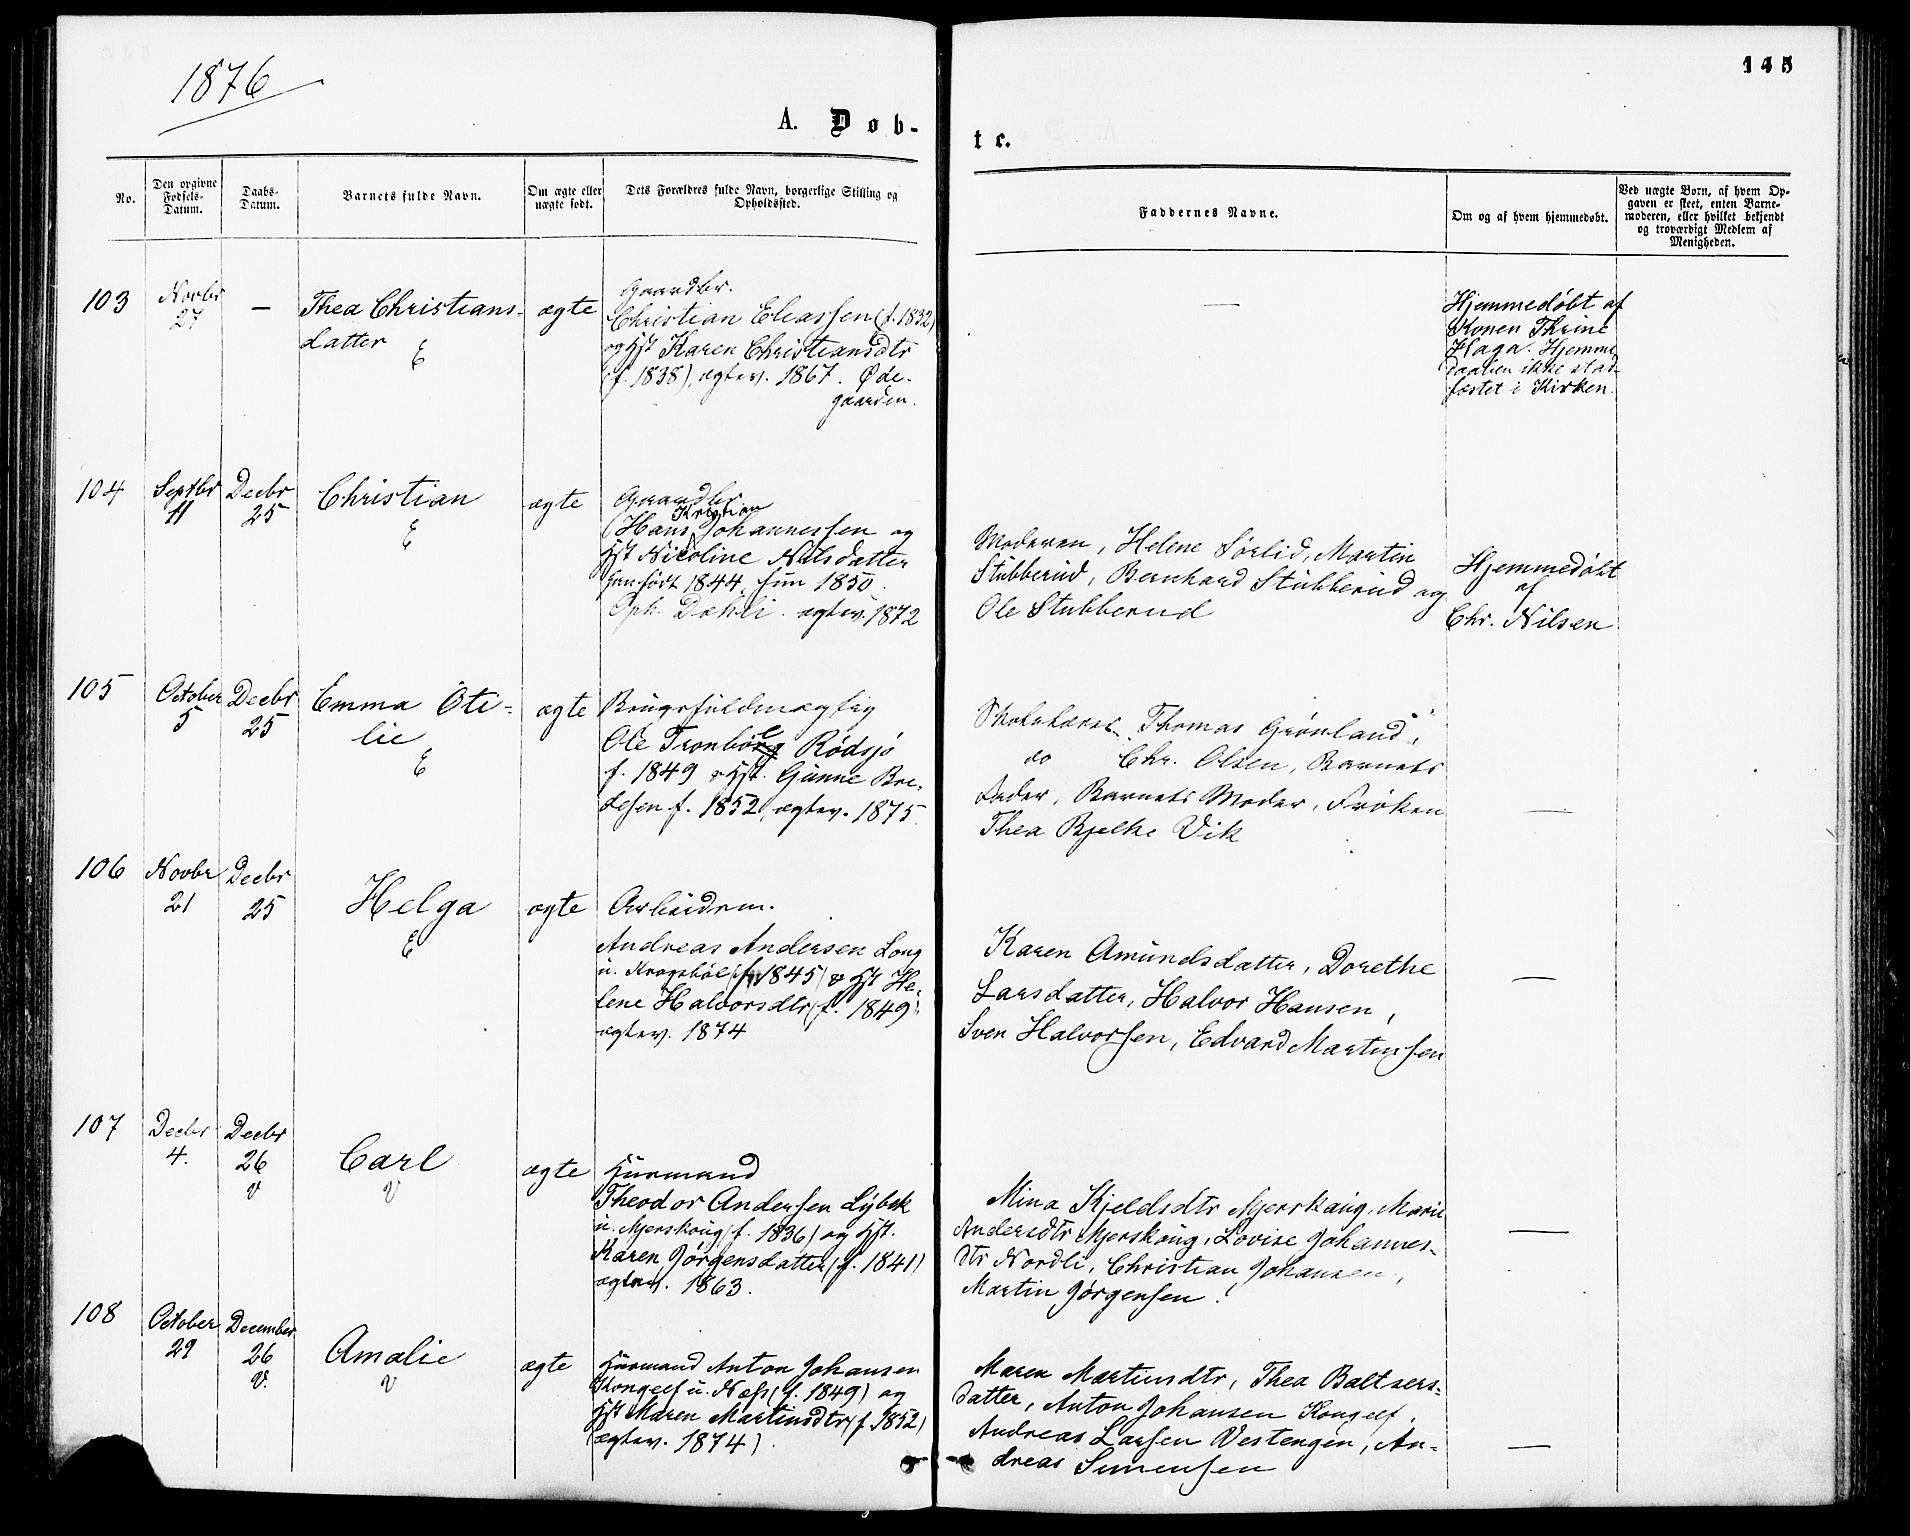 1876
145
A. Døb-
te.
No.
Den opgivne
Fødsels-
Datum.
Daabs-
Datum.
Barnets fulde Navn.
Om ægte eller
uægte født.
Dets Forældres fulde Navn, borgerlige Stilling og
Opholdssted.
Faddernes Navne.
Om og af hvem hjemmedøbt.
Ved uægte Børn, af hvem Op-
gaven er skeet, enten Barne-
moderen, eller hvilket bekjendt
og troværdigt Medlem af
Menigheden.
103
Novbr
27
—
Thea Christians-
datter
E
ægte
Gaardbr.
Christian Eliassen (f. 1832)
og Hst Karen Christiansdtr
(f. 1838), ægtev. 1867. Øde-
gaarden.
—
Hjemmedøbt af
Konen Thrine
Haga. Hjemme
daaben ikke stad-
fæstet i Kirken.
104
Septbr
11
Decbr
25
Christian
E
ægte
Gaardbr.
Kristian
(Hans Johannessen og
Hst Nicoline Nilsdatter
Han født 1844, hun 1850.
Oph. Dæhli. ægtev. 1872
Moderen, Helene Sørlid, Martin
Stubberud, Bernhard Stubberud og
Ole Stubberud
Hjemmedøbt
af
Chr. Nilsen
105
October
5
Decbr
25
Emma Oti-
lie
E
ægte
Brugsfuldmægtig
Ole Tronbøl Rødsjø
f. 1849 & Hst. Gunne Bre-
desen f. 1852, ægtev. 1875.
Skolelærer Thomas Grønland,
do Chr. Olsen, Barnets
Fader, Barnets Moder, Frøken
Thea Bjelke Vik
—
106
Novbr
21
Decbr
25
Helga
E
ægte
Arbeidsm.
Andreas Andersen Long
u. Krogsbøl (f. 1845) & Hst He-
lene Halvorsdtr (f. 1849),
ægtev. 1874
Karen Amundsdatter, Dorethe
Larsdatter, Halvor Hansen,
Sven Halvorsen, Edvard Martinsen
—
107
Decbr
4.
Decbr
26
V
Carl
V
ægte
Husmand
Theodor Andersen Lybek
u. Mjerskaug (f. 1836) og Hst.
Karen Jørgensdatter (f. 1841)
ægtev. 1863.
Mina Kjeldsdtr Mjerskaug, Marie
Andersdtr Mjerskaug, Lovise Johannes-
dtr Nordli, Christian Johansen,
Martin Jørgensen.
—
108
October
29
December
26
V.
Amalie
V
ægte
Husmand Anton Johansen
Kongelf u. Næss (f. 1849) og
Hst Maren Martinsdtr (f. 1852)
(ægtev. 1874).
Maren Martinsdtr, Thea Baltzers-
datter, Anton Johansen Kongelf,
Andreas Larsen Vestengen, An-
dreas Simensen
—